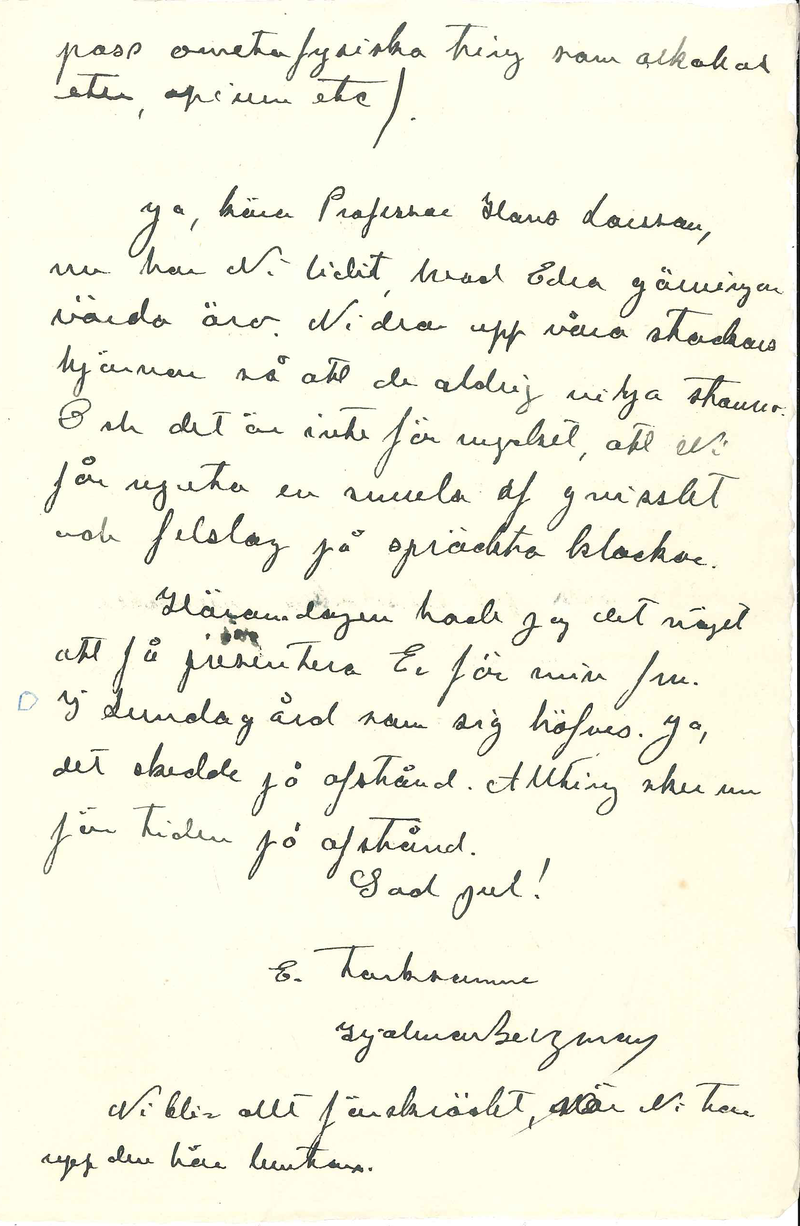 pass ometafysiska ting som alkohol
eter, opium etc).
Ja, kära Professor Hans Larsson,
nu har Ni lidit, hvad Edra gärningar
värda äro. Ni drar upp våra stackars
hjärnor så att de aldrig vilja stanna.
Och det är inte för mycket, att Ni
får njuta en smula af gnisslet
och felslag på spräckta klockor.
Häromdagen hade jag det nöjet
att få presentera Er för min fru.
I Lundagård som sig höfves. Ja,
det skedde på afstånd. Allting sker nu
för tiden på afstånd.
God jul!
E. tacksamme
Hjalmar Bergman
Ni blir allt förskräckt, när Ni tar
upp den här luntan.